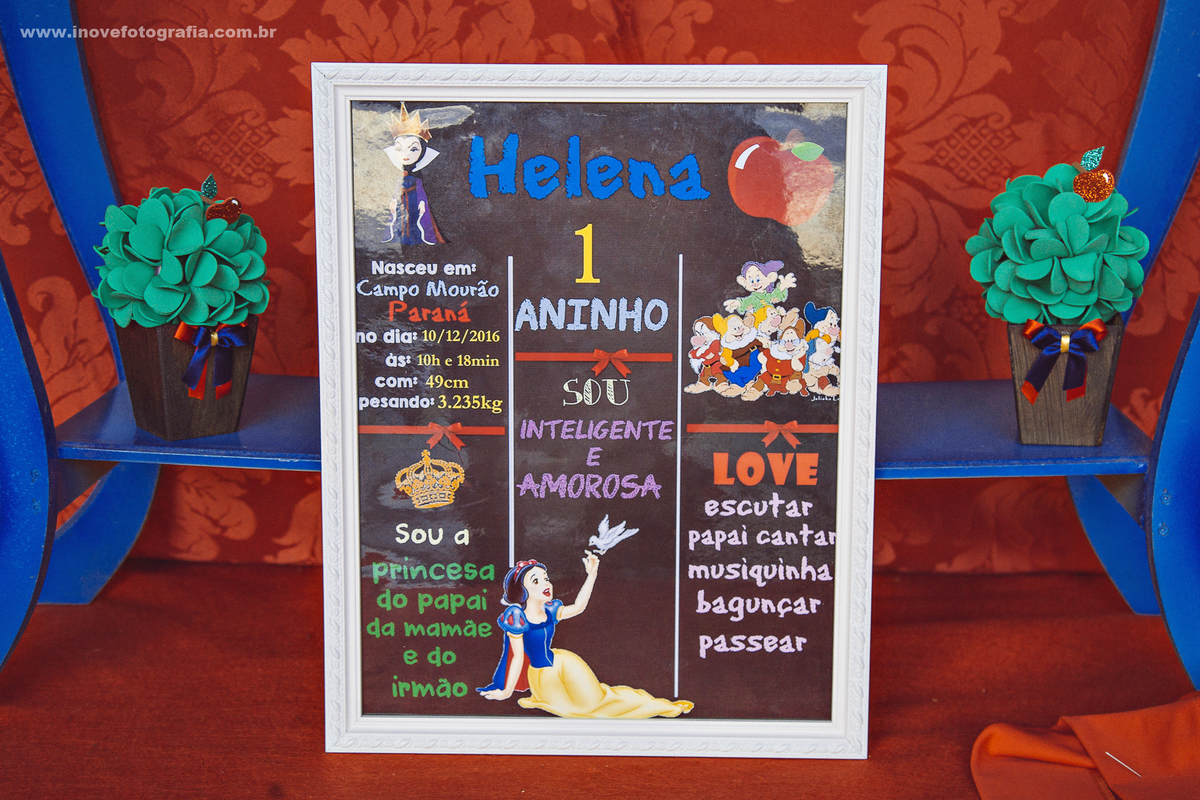 www.inovefotografia.com.br
Helena
1
ANINHO
Nasceu em:
Campo Mourão
Paraná
no dia: 10/12/2016
às: 10h e 18min
com: 49cm
pesando: 3.235kg
Sou a
princesa
do papai
da mamãe
e do
irmão
SOU
INTELIGENTE
E
AMOROSA
LOVE
escutar
papai cantar
musiquinha
bagunçar
passear